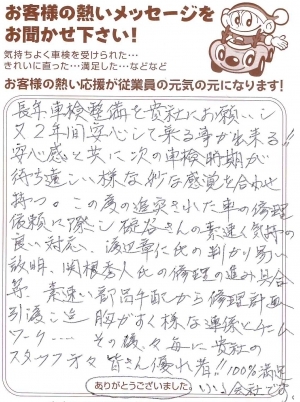 お客様の熱いメッセージを
お聞かせ下さい!
気持ちよく車検を受けられた…
きれいに直った…満足した…などなど
お客様の熱い応援が従業員の元気の元になります!
長年車検整備を貴社にお願いし
又2年間安心して乗る事が出来る!!
安心感と共に次の車検時期が
待ち遠しい様な妙な感覚を合わせ
持つ。この度の追突された車の修理
依頼に際し さんの素速く気持の
良い対応、渡辺 氏の判かり易い
説明、関根 氏の修理の進み具合
等、素速い部品手配から修理計画
引渡し迄 胸がすく様な連係とチーム
ワーク…… その様々毎に貴社の
スタッフ方々 皆さん優れ者!! 100%満足
いい会社です。
ありがとうございました。